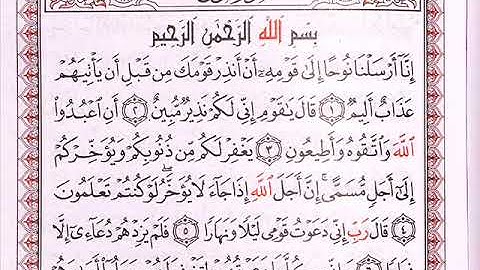 بِسْمِ اللَّهِ الرَّحْمَٰنِ الرَّحِيمِ
إِنَّآ أَرْسَلْنَا نُوحًا إِلَىٰ قَوْمِهِۦٓ أَنْ أَنذِرْ قَوْمَكَ مِن قَبْلِ أَن يَأْتِيَهُمْ
عَذَابٌ أَلِيمٌ ١ قَالَ يَٰقَوْمِ إِنِّى لَكُمْ نَذِيرٌ مُّبِينٌ ٢ أَنِ ٱعْبُدُوا۟
ٱللَّهَ وَٱتَّقُوهُ وَأَطِيعُونِ ٣ يَغْفِرْ لَكُم مِّن ذُنُوبِكُمْ وَيُؤَخِّرْكُمْ
إِلَىٰٓ أَجَلٍ مُّسَمًّى ۚ إِنَّ أَجَلَ ٱللَّهِ إِذَا جَآءَ لَا يُؤَخَّرُ ۖ لَوْ كُنتُمْ تَعْلَمُونَ
٤ قَالَ رَبِّ إِنِّى دَعَوْتُ قَوْمِى لَيْلًا وَنَهَارًا ٥ فَلَمْ يَزِدْهُمْ دُعَآءِىٓ إِلَّا